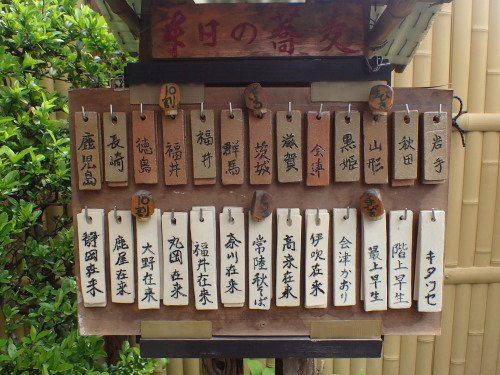 本日の蕎麦
10割
鹿児島
長崎
徳島
福井
福井
群馬
茨城
滋賀
会津
黒姫
山形
秋田
岩手
10割
静岡在来
鹿屋在来
大野在来
丸岡在来
福井在来
奈川在来
常陸秋そば
高来在来
伊吹在来
会津かおり
最上早生
階上早生
キタワセ